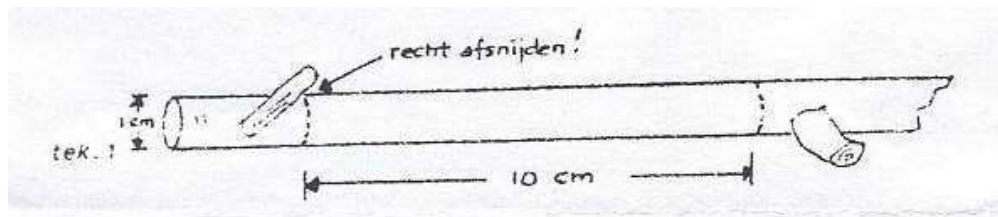 recht afsnijden!
1 cm
tek. 1
10 cm